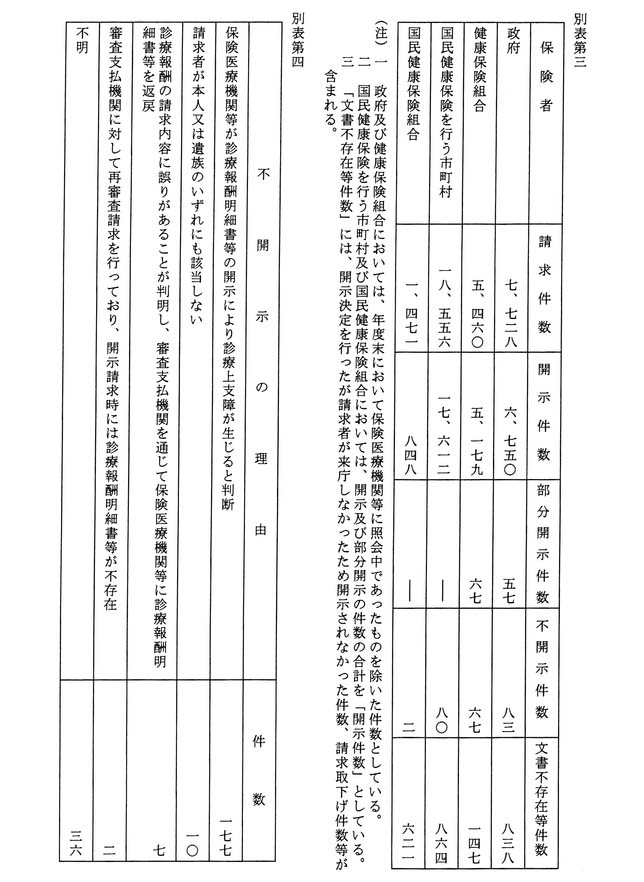 別表第三
保険者　請求件数　開示件数　部分開示件数　不開示件数　文書不存在等件数
政府　七、七二八　六、七五〇　五七　八三　八三八
健康保険組合　五、四六〇　五、一七九　六七　六七　一四七
国民健康保険を行う市町村　一八、五五六　一七、六一二　―　八〇　八六四
国民健康保険組合　一、四七一　八四八　―　二　六二一
（注）一　政府及び健康保険組合においては、年度末において保険医療機関等に照会中であったものを除いた件数としている。
二　国民健康保険を行う市町村及び国民健康保険組合においては、開示及び部分開示の件数の合計を「開示件数」としている。
三　「文書不存在等件数」には、開示決定を行ったが請求者が来庁しなかったため開示されなかった件数、請求取下げ件数等が
含まれる。
別表第四
不開示の理由　件数
保険医療機関等が診療報酬明細書等の開示により診療上支障が生じると判断　一七七
請求者が本人又は遺族のいずれにも該当しない　一〇
診療報酬の請求内容に誤りがあることが判明し、審査支払機関を通じて保険医療機関等に診療報酬明
細書等を返戻　七
審査支払機関に対して再審査請求を行っており、開示請求時には診療報酬明細書等が不存在　二
不明　三六